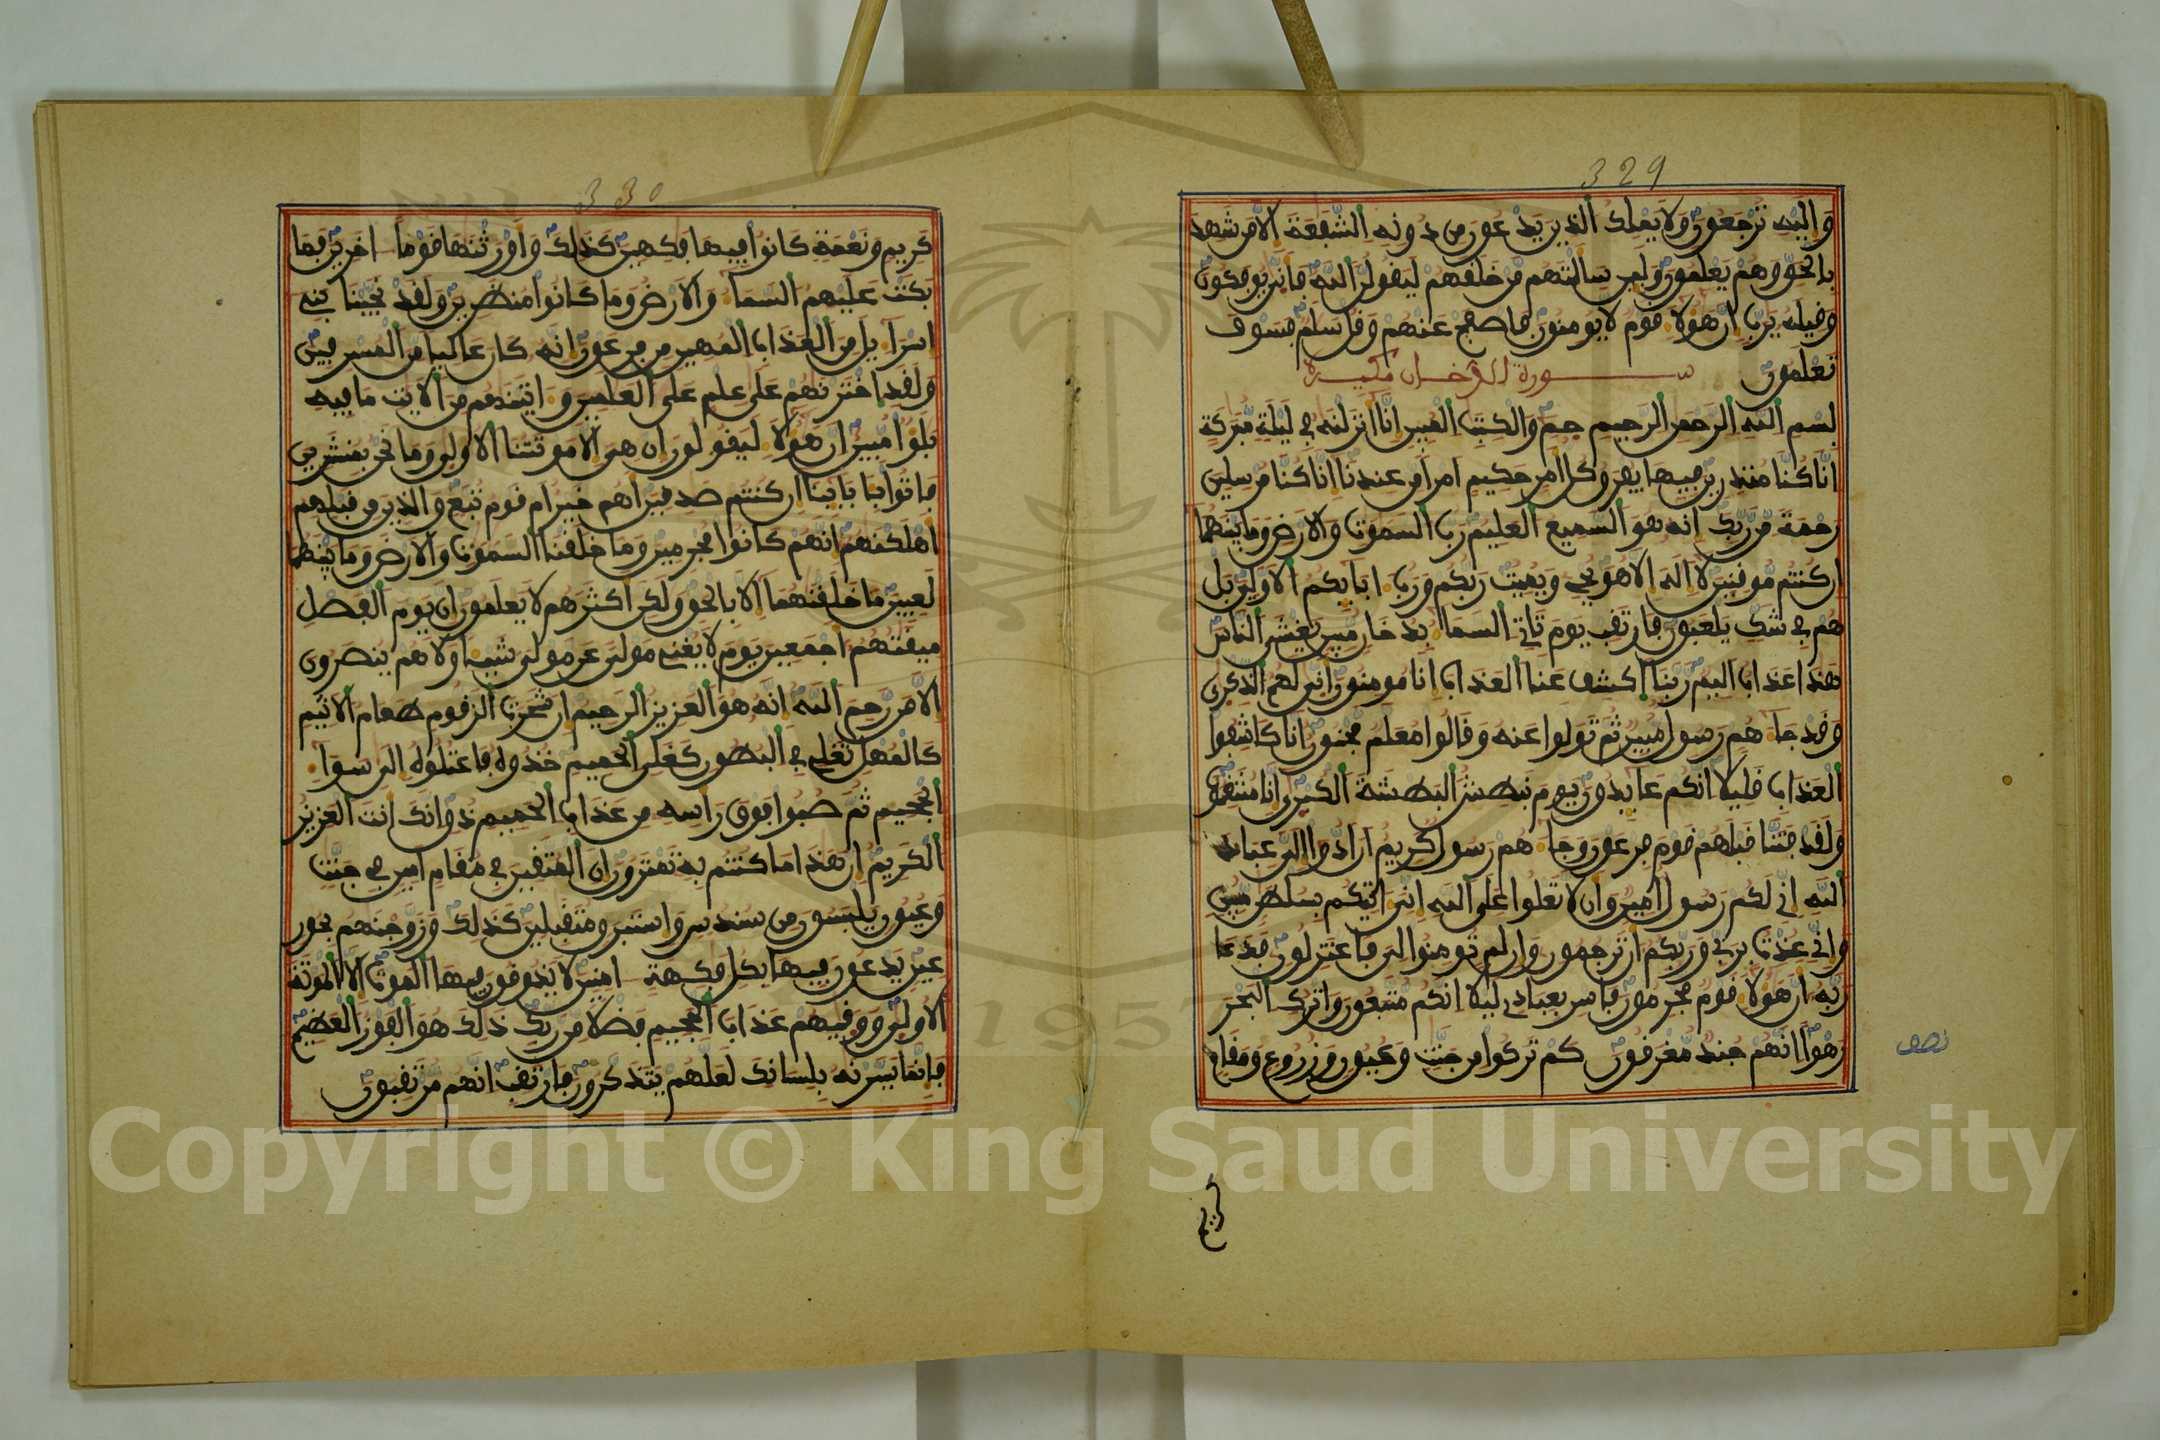 329
وإليه ترجعون ولا يملك الذين يدعون من دونه الشفعة إلا من شهد
بالحق وهم يعلمون ولين سالتهم من خلقهم ليقولن الله فأنى يوفكون
وقيله يرب إن هولاء قوم لا يومنون فاصفح عنهم وقل سلم فسوف
تعلمون سورة الدخان مكية
بسم الله الرحمن الرحيم حم والكتب المبين إنا أنزلنه في ليلة مبركة
إنا كنا منذرين فيها يفرق كل أمر حكيم أمرا من عندنا إنا كنا مرسلين
رحمة من ربك إنه هو السميع العليم رب السموت والارض وما بينهما
إن كنتم موقنين لا إله إلا هو يحي ويميت ربكم ورب ءابايكم الاولين بل
هم في شك يلعبون فارتقب يوم تاتي السماء بدخان مبين يغشى الناس
هذا عذاب اليم ربنا اكشف عنا العذاب إنا مومنون أنى لهم الذكرى
وقد جاءهم رسول مبين ثم تولوا عنه وقالوا معلم مجنون إنا كاشفوا
العذاب قليلا إنكم عايدون يوم نبطش البطشة الكبرى إنا منتقمون
ولقد فتنا قبلهم قوم فرعون وجاءهم رسول كريم أن ادوا إلي عباد
الله إني لكم رسول امين وأن لا تعلوا على الله إني ءاتيكم بسلطن مبين
وإني عذت بربي وربكم أن ترجمون وإن لم تومنوا لي فاعتزلون فدعا
ربه أن هولاء قوم مجرمون فاسر بعبادي ليلا إنكم متبعون واترك البحر
رهوا إنهم جند مغرقون كم تركوا من جنت وعيون وزروع ومقام
نصف
كريم
330
كريم ونعمة كانوا فيها فكهين كذلك وأورثنها قوما ـاخرين فما
بكت عليهم السماء والارض وما كانوا منظرين ولقد نجينا بني
إسراءيل من العذاب المهين من فرعون إنه كان عاليا من المسرفين
ولقد اخترنهم على علم على العلمين وءاتينهم من الايت ما فيه
بلؤا مبين إن هولاء ليقولون إن هي إلا موتتنا الاولى وما نحن بمنشرين
فاتوا بابائنا إن كنتم صدقين أهم خير ام قوم تبع والذين من قبلهم
أهلكنهم إنهم كانوا مجرمين وما خلقنا السموت والارض وما بينهما
لعبين ما خلقنهما إلا بالحق ولكن اكثرهم لا يعلمون إن يوم الفصل
ميقتهم أجمعين يوم لا يغني مولى عن مولى شيئا ولا هم ينصرون
إلا من رحم الله إنه هو العزيز الرحيم إن شجرت الزقوم طعام الاثيم
كالمهل تغلي في البطون كغلي الحميم خذوه فاعتلوه إلى سواء
الجحيم ثم صبوا فوق راسه من عذاب الحميم ذق إنك أنت العزيز
الكريم إن هذا ما كنتم به تمترون إن المتقين في مقام امين في جنت
وعيون يلبسون من سندس وإستبرق متقبلين كذلك وزوجنهم بحور
عين يدعون فيها بكل فكهة ـامنين لا يذوقون فيها الموت إلا الموتة
الاولى ووقيهم عذاب الجحيم فضلا من ربك ذلك هو الفوز العظيم
فإنما يسرنه بلسانك لعلهم يتذكرون فارتقب انهم مرتقبون
1957
Copyright © King Saud University